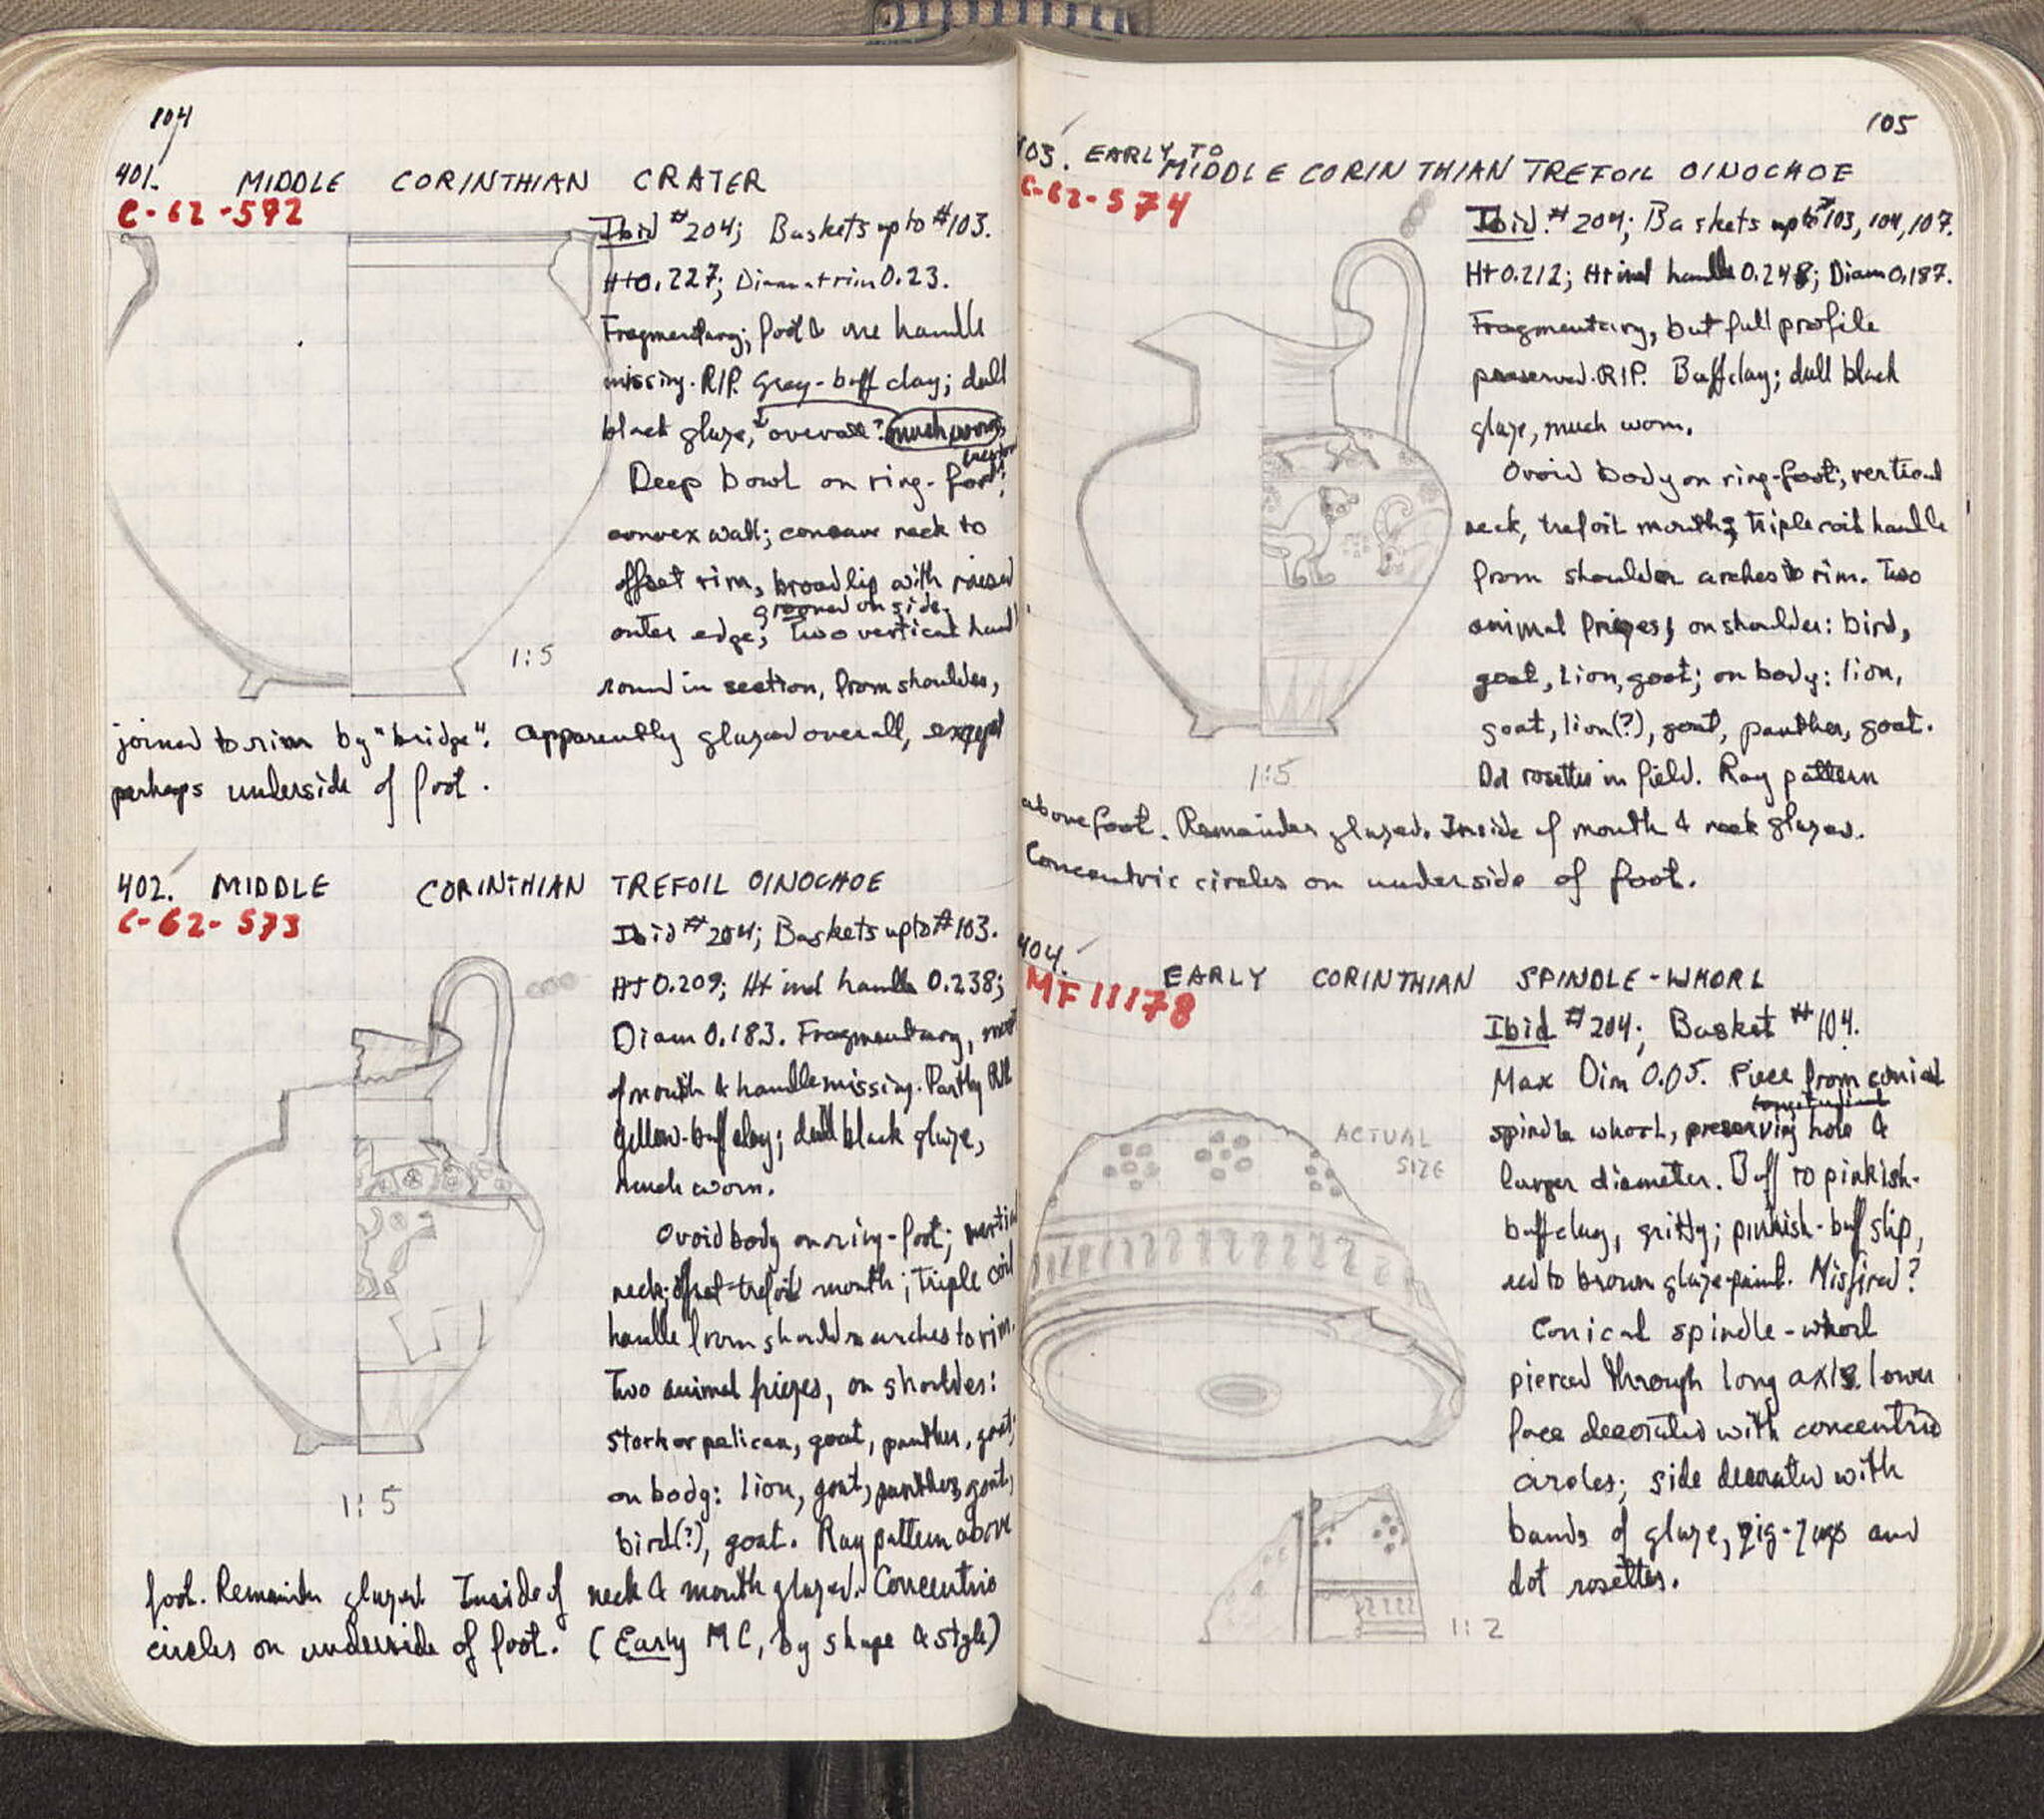 104
401. MIDDLE CORINTHIAN CRATER
C-62-572
Ibid #204; Baskets up to #103.
Ht 0.227; Diam at rim 0.23.
Fragmentary; foot & one handle
missing. RIP. Gray-buff clay; dull
black glaze, overall? much worn,
Deep bowl on ring-foot;
convex wall; concave neck to
offset rim, broad lip with raised
grooved on side.
outer edge; Two vertical handl
round in section, from shoulder,
1:5
joined to rim by "bridge". Apparently glazed overall, except
perhaps underside of foot.
402. MIDDLE CORINTHIAN TREFOIL OINOCHOE
C-62-573
Ibid #204; Baskets up to #103.
Ht 0.209; Ht incl handle 0.238;
Diam 0.183. Fragmentary, most
of mouth & handle missing. Partly RIP.
Yellow-buff clay; dull black glaze,
much worn.
Ovoid body on ring-foot; vertical
neck; offset trefoil mouth; triple coil
handle from shoulder arches to rim.
Two animal friezes, on shoulder:
stork or pelican, goat, panther, goat;
on body: lion, goat, panther, goat,
bird(?), goat. Ray pattern above
1:5
foot. Remainder glazed. Inside of neck & mouth glazed. Concentric
circles on underside of foot. (Early MC, by shape & style)
105
403. EARLY TO
MIDDLE CORINTHIAN TREFOIL OINOCHOE
C-62-574
Ibid. #204; Baskets up to #103, 104, 107.
Ht 0.212; Ht incl handle 0.248; Diam 0.187.
Fragmentary, but full profile
preserved. RIP. Buff clay; dull black
glaze, much worn.
Ovoid body on ring-foot; vertical
neck, trefoil mouth; triple coil handle
from shoulder arches to rim. Two
animal friezes, on shoulder: bird,
goat, lion, goat; on body: lion,
goat, lion(?), goat, panther, goat.
Dot rosettes in field. Ray pattern
1:5
above foot. Remainder glazed. Inside of mouth & neck glazed.
Concentric circles on underside of foot.
404.
EARLY CORINTHIAN SPINDLE-WHORL
MF 11178
Ibid #204; Basket #104.
Max Dim 0.05. Piece from conical
longitudinal
spindle whorl, preserving hole &
larger diameter. Buff to pinkish-
buff clay, gritty; pinkish-buff slip,
red to brown glaze-paint. Misfired?
Conical spindle-whorl
pierced through long axis. lower
face decorated with concentric
circles; side decorated with
bands of glaze, zig-zags and
dot rosettes.
ACTUAL
SIZE
1:2